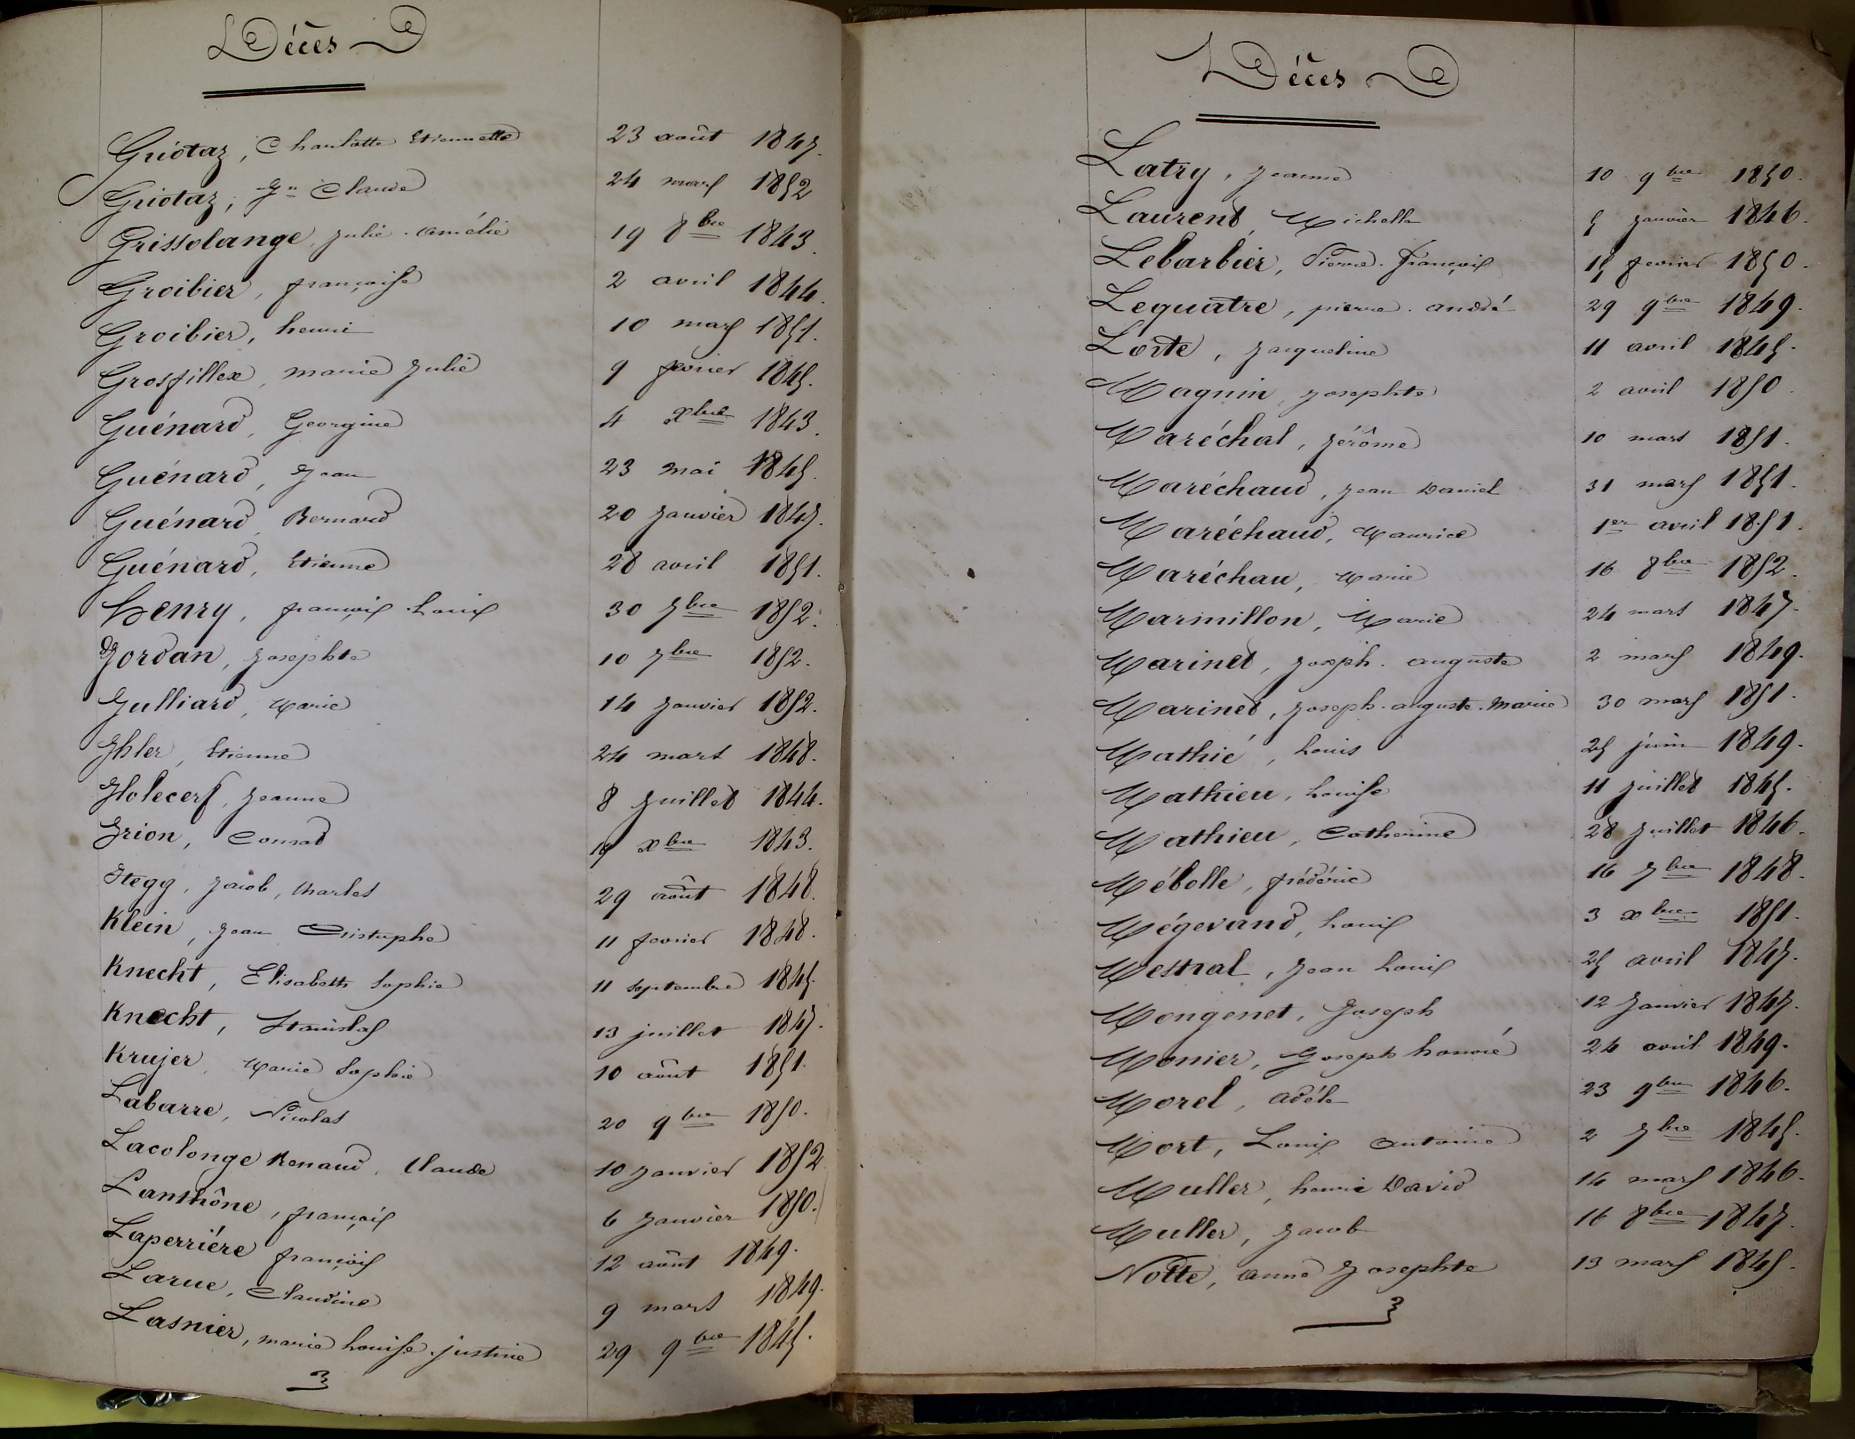 Décès
Griotaz, Charlotte Etiennette 23 août 1847.
Griotaz, Jn Claude 24 mars 1852
Grissolange, Julie Amélie 19 8bre 1843.
Groibier, françoise 2 avril 1844.
Groibier, henri 10 mars 1851.
Grosfillex, marie Julie 9 fevrier 1845.
Guénard, Georgine 4 xbre 1843.
Guénard, Jean 23 mai 1845.
Guénard, Bernard 20 Janvier 1847.
Guénard, Etienne 28 avril 1851.
Henry, françois Louis 30 7bre 1852.
Jordan, Josephte 10 7bre 1852.
Julliard, Marie 14 Janvier 1852.
Jhler, Etienne 24 mars 1848.
Jholecerf, Jeanne 8 Juillet 1844.
Jrion, Conrad 19 xbre 1843.
Itegg, Jacob, Charles 29 août 1848.
Klein, Jean Cristophe 11 fevrier 1848.
Knecht, Elisabeth Sophie 11 septembre 1845.
Knecht, Stanislas 13 juillet 1847.
Krujer, Marie Sophie 10 août 1851.
Labarre, Nicolas 20 9bre 1850.
Lacolonge Renaud, Claude 10 Janvier 1852
Lanthône, françois 6 Janvier 1850.
Laperriére françois 12 août 1849.
Larue, Claudine 9 mars 1849.
Lasnier, marie Louise justine 29 9bre 1845.
Décès
Latry, Jeanne 10 9bre 1850.
Laurent, Michelle 5 Janvier 1846.
Lebarbier, Pierre françois 15 fevrier 1850.
Lequatre, pierre andré 29 9bre 1849.
Lorte, Jacqueline 11 avril 1845.
Magnin, Josephte 2 avril 1850.
Maréchal, Jérôme 10 mars 1851.
Maréchaud, Jean Daniel 31 mars 1851.
Maréchaud, Maurice 1er avril 1851.
Maréchau, Marie 16 8bre 1852.
Marmillon, Marie 24 mars 1847.
Marinet, Joseph auguste 2 mars 1849.
Marinet, Joseph auguste Marie 30 mars 1851.
Mathié, Louis 25 juin 1849.
Mathieu, Louise 11 juillet 1845.
Mathieu, Catherine 28 Juillet 1846.
Mébolle, frédéric 16 7bre 1848.
Mégevand, Louis 3 xbre 1851.
Mestral, Jean Louis 25 avril 1847.
Mongenet, Joseph 12 Janvier 1847.
Monier, Joseph honoré 24 avril 1849.
Morel, adéle 23 9bre 1846.
Mort, Louis antoine 2 7bre 1845.
Muller, henrie David 14 mars 1846.
Muller, Jacob 16 8bre 1847.
Notte, anne Josephte 13 mars 1845.